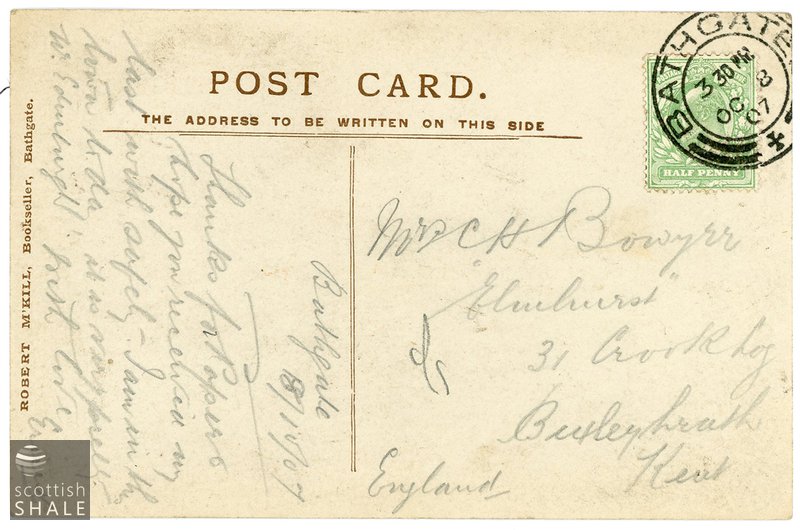 POST CARD.
THE ADDRESS TO BE WRITTEN ON THIS SIDE
ROBERT M'KILL, Bookseller, Bathgate.
BATHGATE
3 30 PM
OC 8
07
HALF PENNY
Bathgate
8/10/07
Thanks for Papers
I hope you received my
last with safely - I am in the
town today it is very pretty
W. Edinburgh. Best love
Mrs C H Bowyer
"Elmhurst"
31 Crook Log
Bexleyheath
Kent
England
scottish
SHALE